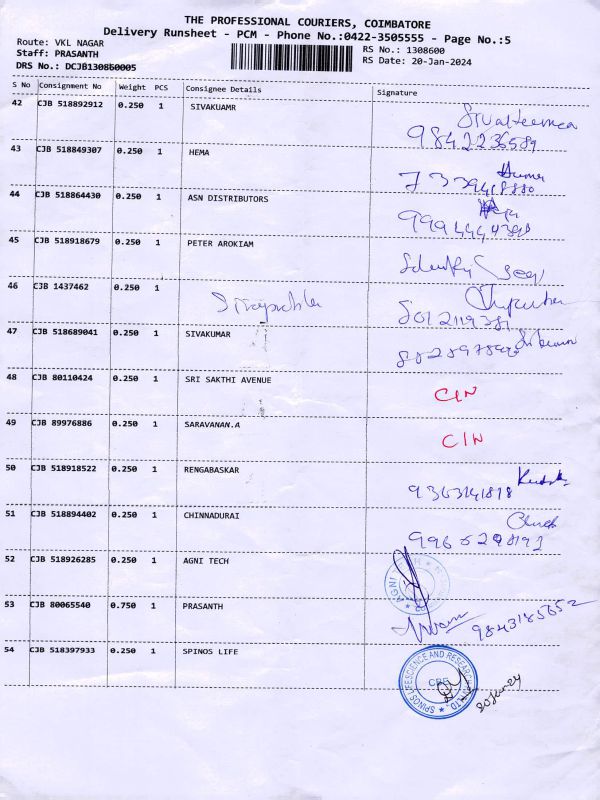 THE PROFESSIONAL COURIERS, COIMBATORE
Delivery Runsheet - PCM - Phone No.:0422-3505555 - Page No.:5
Route: VKL NAGAR
Staff: PRASANTH
DRS No.: DCJB130860005
RS No.: 1308600
RS Date: 20-Jan-2024
S No Consignment No Weight PCS Consignee Details Signature
42 CJB 518892912 0.250 1 SIVAKUAMR
9842236589
43 CJB 518849307 0.250 1 HEMA
7339418880
44 CJB 518864430 0.250 1 ASN DISTRIBUTORS
45 CJB 518918679 0.250 1 PETER AROKIAM
46 CJB 1437462 0.250 1
8012119381
47 CJB 518689041 0.250 1 SIVAKUMAR
48 CJB 80110424 0.250 1 SRI SAKTHI AVENUE
CIN
49 CJB 89976886 0.250 1 SARAVANAN.A
CIN
50 CJB 518918522 0.250 1 RENGABASKAR
9363141818
51 CJB 518894402 0.250 1 CHINNADURAI
52 CJB 518926285 0.250 1 AGNI TECH
53 CJB 80065540 0.750 1 PRASANTH
9843185652
54 CJB 518397933 0.250 1 SPINOS LIFE